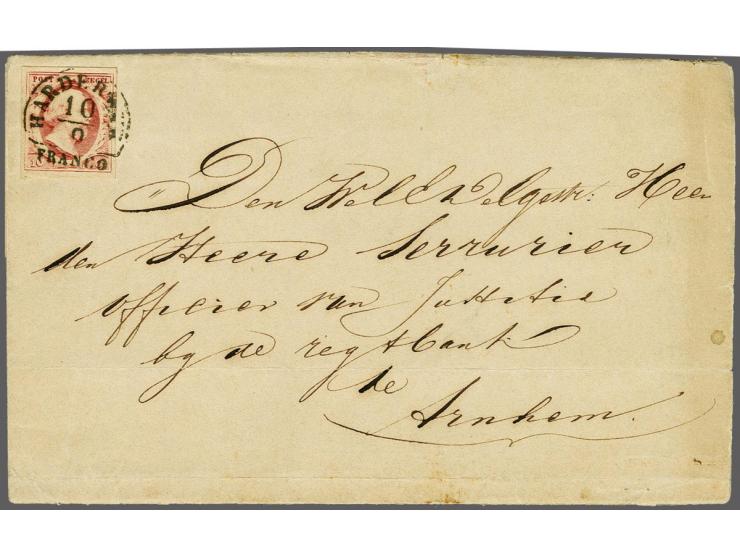 POST ZEGEL
HARDER
10
FRANCO
Den Wel Edelgestr: Heer
den Heere Serrurier
officier van Justitie
by de regtbank
te
Arnhem.